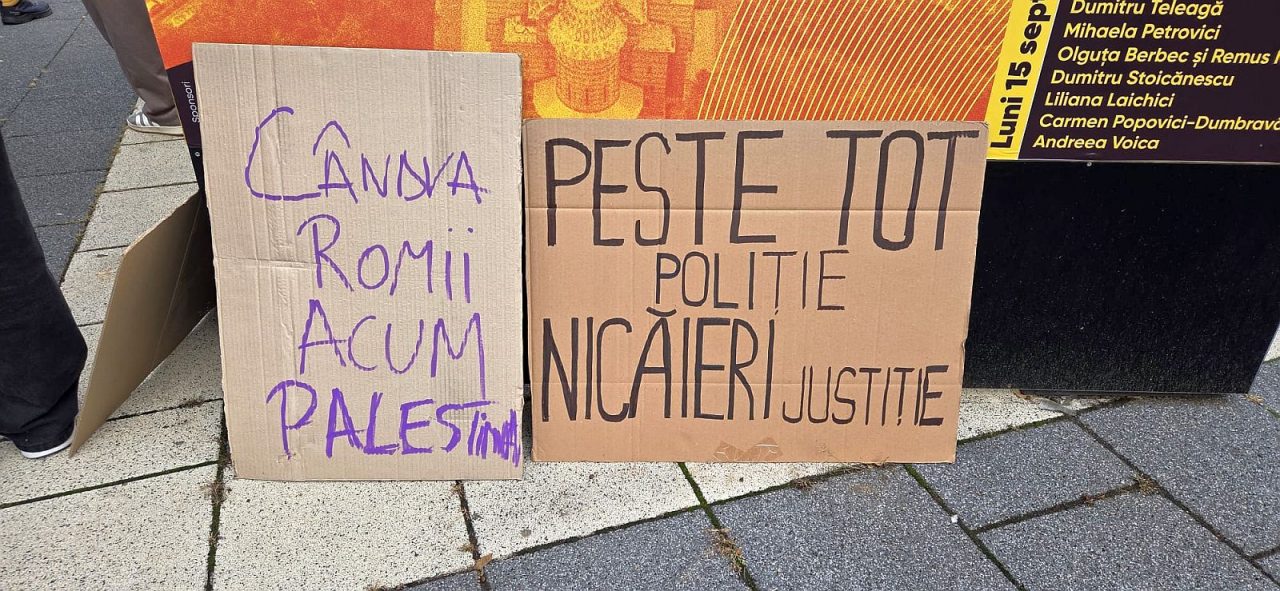 CÂNDVA
ROMII
ACUM
PALESTINA
PESTE TOT
POLIȚIE
NICĂIERI JUSTIȚIE
Sponsori
Luni 15 sept
Dumitru Teleagă
Mihaela Petrovici
Olguța Berbec și Remus
Dumitru Stoicănescu
Liliana Laichici
Carmen Popovici-Dumbravă
Andreea Voica